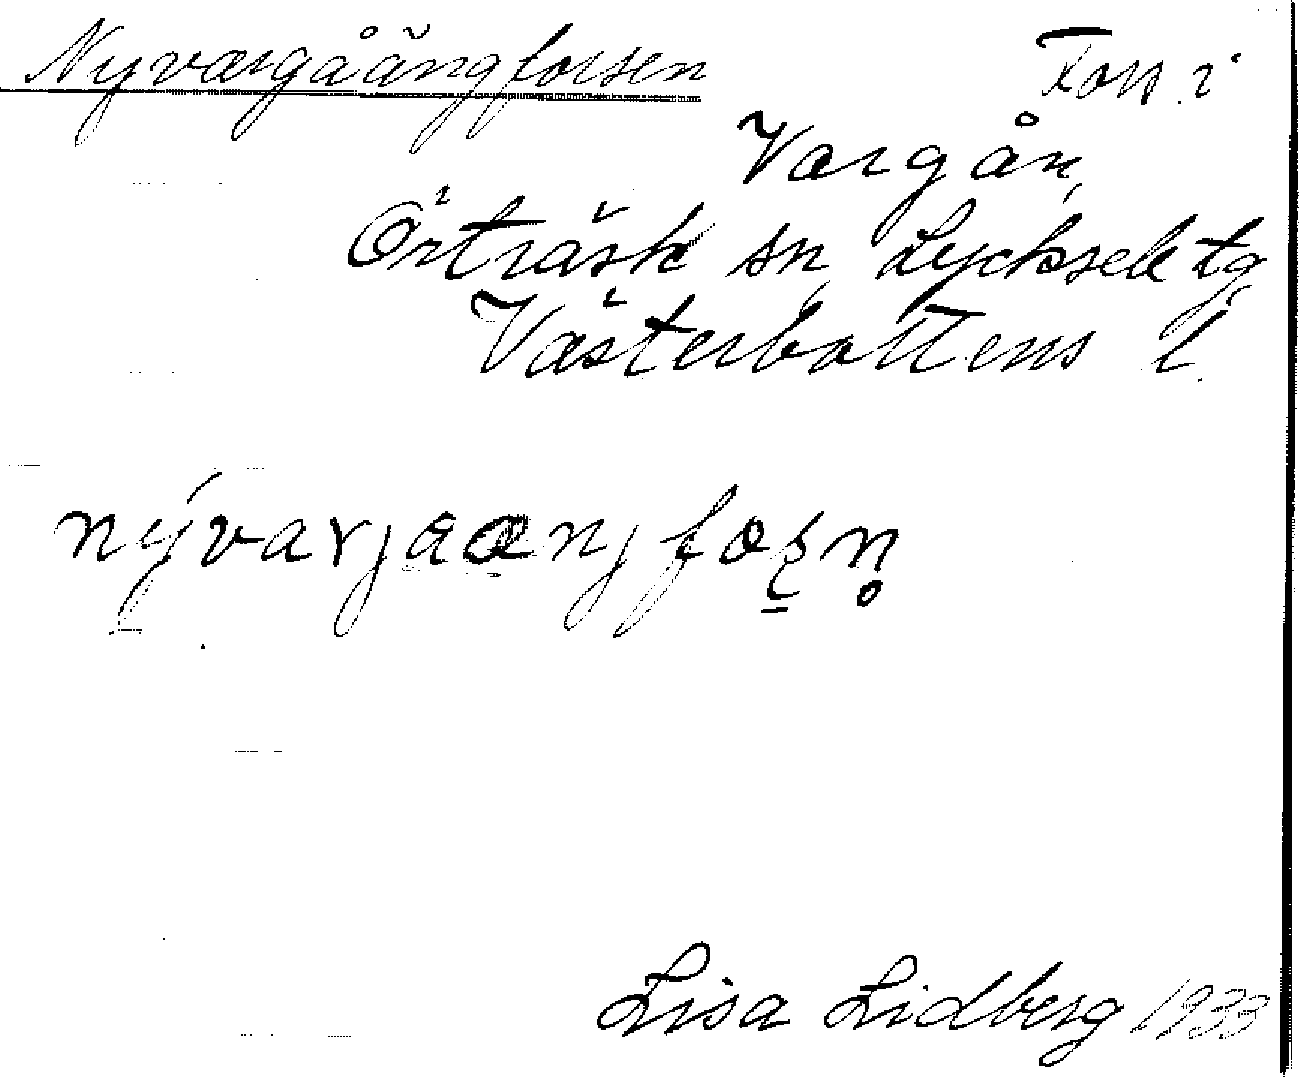 Nyvargåängforsen Fors i
Vargån,
Örträsk sn, Lycksele tg
Västerbottens l.
nývarjaænjfoʂn̥
Lisa Lidberg 1933